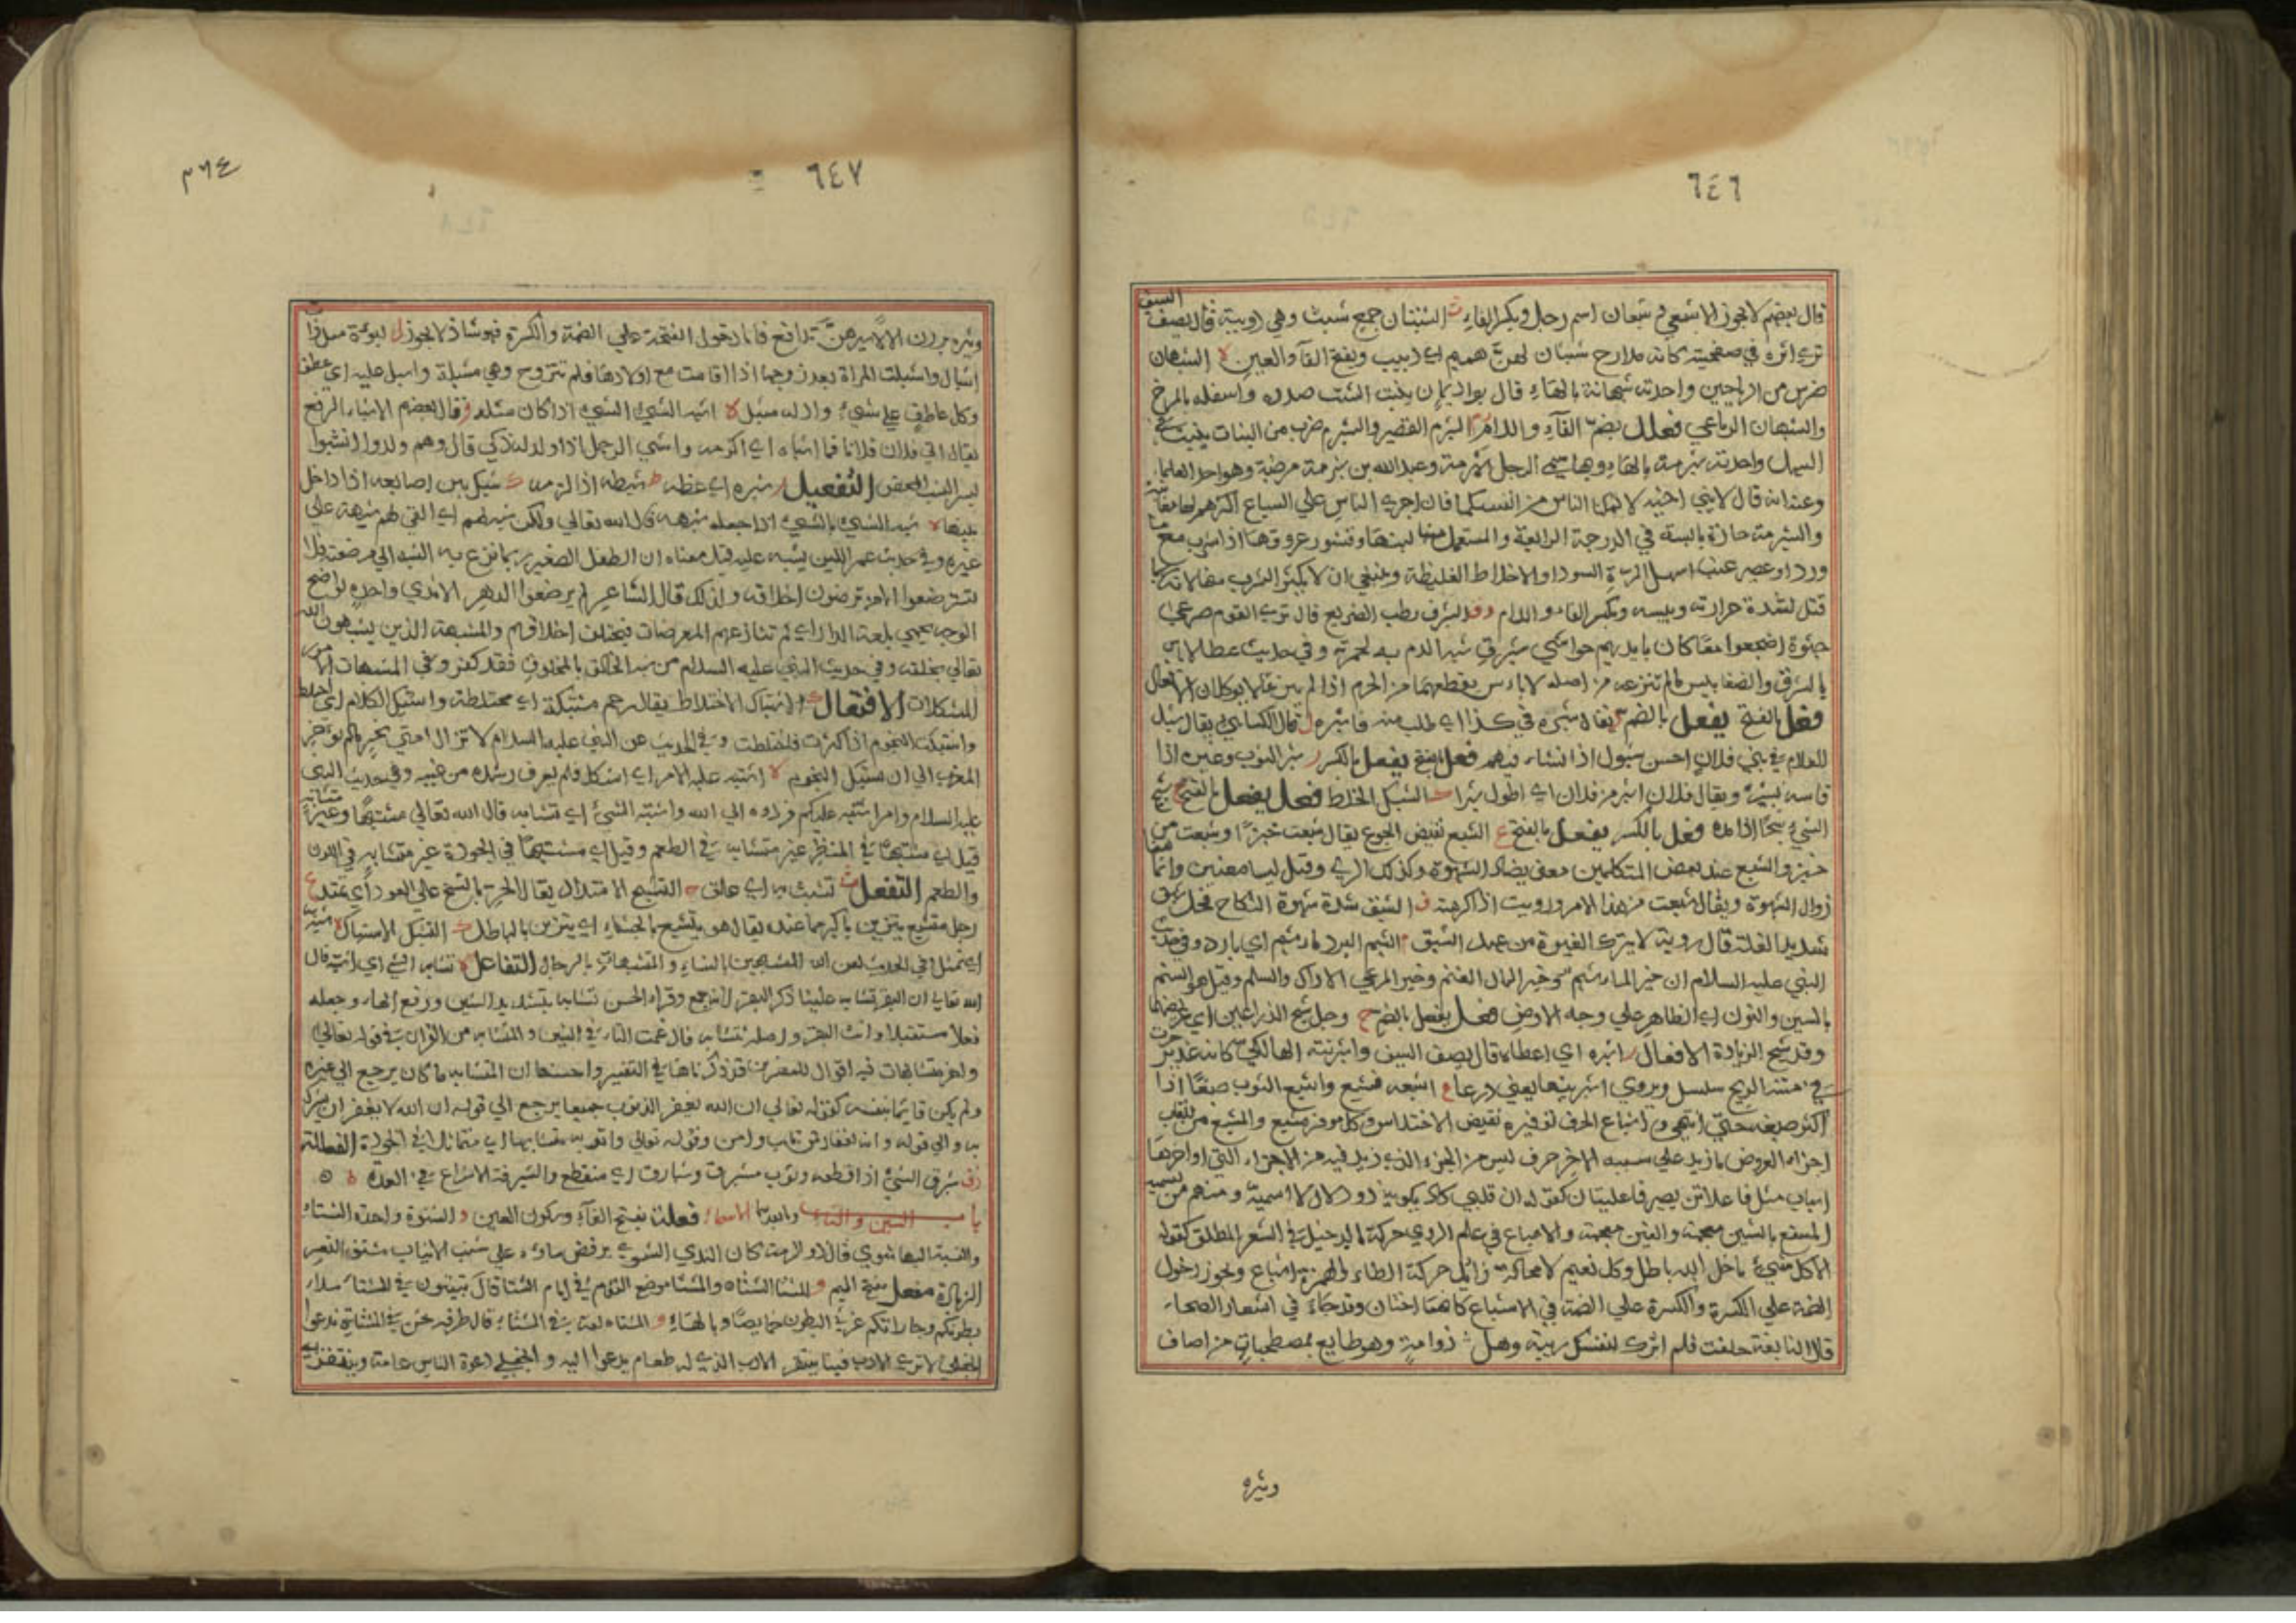 ٦٤٦
قال بعضهم لا يجوز الا شبعى شبعان اسم رجل وبكسر الفاء ث الشبثان جمع شبث وهي دويبة قال يصف السيف
ترى اثره في صفحيته كانه مدارج شبثان لهن هميم اي دبيب وبفتح الفآ والعين ه الشبهان
ضرب من الرياحين واحدته شبهانة بالهاء قال بواد يمان ينبت الشث صدره واسفله بالمرخ
والشبهان الرباعي فعلل بضم الفآء واللام م الشبرم القصير والشبرم ضرب من النبات ينبت في
السهل واحدته شبرمة بالهاء وبها سمي الرجل شبرمة وعبد الله بن شبرمة من ضبة وهو احد العلماء
وعنه انه قال لابني اخيه لا تمكنا الناس من انفسكما فان اجرى الناس على السباع اكثرهم لها معاينة
والشبرمة حارة يابسة في الدرجة الرابعة والمستعمل منها لبنها وقشور عروقها اذا شرب مع
ورد او عصير عنب اسهل المرة السودا والاخلاط الغليظة وينبغي ان لا يكثر الشرب منها لانه ربما
قتل لشدة حرارته ويبسه وبكسر الفاء واللام ق الشبرق رطب الضريع قال ترى القوم صرعى
جثوة اضجعوا معا كان بايديهم حواشي شبرق شبه الدم به لحمرته وفي حديث عطا لا باس
بالشبرق والضغابيس ما لم تنزعه من اصله لا باس بقطعهما من الحرم اذا لم ينزعا لانهما يوكلان الافعال
فعل بالفتح يفعل بالضم ر يقال شبره في كذا اي طلب منه فاشبره ل قال الكسائي يقال شبل
الغلام في بني فلان احسن شبول اذا نشاء فيهم فعل بالفتح يفعل بالكسر ر شبر الثوب وغيره اذا
قاسه بشبره ويقال فلان اشبر من فلان اي اطول شبرا ك الشبك الخلط فعل يفعل بالفتح ح شبح
الشيء شبحا اذا مده فعل بالكسر يفعل بالفتح ع الشبع نقيض الجوع يقال شبعت خبزا وشبعت من
خبز والشبع عند بعض المتكلمين معنى يضاد الشهوة وكذلك الري وقيل ليسا معنيين وانما هما
زوال الشهوة ويقال شبعت من هذا الامر ورويت اذا كرهته ق الشبق شدة شهوة النكاح فحل شبق
شديد الغلمة قال روبة لا يترك الغيرة من عهد الشبق م الشبم البرد ماء شبم اي بارد وفي حديث
النبي عليه السلام ان خير الماء الشبم وخير المال الغنم وخير المرعى الاراك والسلم وقيل هو السنم
بالسين والنون اي الظاهر على وجه الارض فعل يفعل بالضم ح رجل شبح الذراعين اي عريضهما
وقد شبح الزيادة الافعال ر اشبره اي اعطاه قال يصف السيف واشبرنيه الهالكي كانه غدير جرت
في متنه الريح سلسل ويروى اشبرنيها يعني درعا ع اشبعه فشبع واشبع الثوب صبغا اذا
اكثر صبغه حتى انتهى واشباع الحرف توفيره نقيض الاختلاس وكل موفر مشبع والمشبع من القاب
اجزاء العروض ما زيد على سببه الاخر حرف ليس من الجزء الذي زيد فيه من الاجزاء التي اواخرها
اسباب مثل فاعلاتن يصير فاعليتان كقوله ان قلبي كاد يكويه ذو دلال لا اسميه ومنهم من يسميه
المسبغ بالسين معجمة والغين معجمة والاشباع في علم الروي حركة الدخيل في الشعر المطلق كقوله
الا كل شيء ما خلا الله باطل وكل نعيم لا محالة زائل حركة الطاء والهمزة اشباع ويجوز دخول
الضمة على الكسرة والكسرة على الضمة في الاشباع كانهما اختان وقد جاء في اشعار الفصحاء
قال النابغة حلفت فلم اترك لنفسك ريبة وهل يأثمن ذو امة وهو طايع بمصطحبات من لصاف
وثبره
٦٤٧
٣٦٤
وثبره يزرن الالا سيرهن تدافع فاما دخول الفتحة على الضمة والكسرة فهو شاذ لا يجوز ل لبوءة مشبل ذات
اشبال واشبلت المراة بعد زوجها اذا اقامت مع اولادها فلم تتزوج وهي مشبلة واشبل عليه اي عطف
وكل عاطف على شيء واد له مشبل ه اشبه الشيء الشيء اذا كان مثله و قال بعضهم الاشباء الرفع
يقال اتى فلان فلانا فما اشباه اي اكرمه واشبى الرجل اذا ولد له ولد ذكي قال وهم ولدوا اشبوا
بسر النسب المحض التفعيل ر شبره اي عظمه ط شبطه اذا لزمه ك شبك بين اصابعه اذا داخل
بينها ه شبه الشيء بالشيء اذا جعله شبهه قال الله تعالى ولكن شبه لهم اي القي لهم شبهه على
غيره وفي حديث عمر اللبن يشبه عليه قيل معناه ان الطفل الصغير ربما نزع به الشبه الى مرضعته فلا
تسترضعوا الا من ترضون اخلاقه ولذلك قال الشاعر لم يرضعوا الدهر الا ثدي واحدة لواضح
الوجه يحمي باحة الدار اي لم تنازعهم المرضعات فتختلف اخلاقهم والمشبهة الذين يشبهون الله
تعالى بخلقه وفي حديث النبي عليه السلام من شبه الخالق بالمخلوق فقد كفر وفي المشبهات الامور
المشكلات الافتعال ك الاشتباك الاختلاط يقال رحم مشتبكة اي مختلطة واشتبك الكلام اي اختلط
واشتبكت النجوم اذا كثرت فاختلطت وفي الحديث عن النبي عليه السلام لا تزال امتي بخير ما لم تؤخر
المغرب الى ان تشتبك النجوم ه اشتبه عليه الامر اي اشكل فلم يعرف رشده من غيه وفي حديث النبي
عليه السلام وامر اشتبه عليكم فردوه الى الله واشتبه الشيء اي تشابه قال الله تعالى مشتبها وغير متشابه
قيل اي مشتبها في المنظر غير متشابه في الطعم وقيل اي مشتبها في الجودة غير متشابه في اللون
والطعم التفعل ث تشبث به اي علق ح التشبح الامتداد يقال الحرباء تشبح على العود اي تمتد ع
رجل متشبع يتزين باكثر مما عنده يقال هو يتشبع بالحسناء اي يتزين بالباطل ك التشبك الاشتباك ه تشبه به
اي تمثل وفي الحديث لعن الله المتشبهين بالنساء والمتشبهات بالرجال التفاعل ه تشابه الشيء اي اشتبه قال
الله تعالى ان البقر تشابه علينا ذكر البقر لانه جمع وقراء الحسن تشابه بتشديد الشين ورفع الهاء وجعله
فعلا مستقبلا وانث البقر واصله تتشابه فادغمت التاء في الشين والمتشابه من القران في قوله تعالى
واخر متشابهات فيه اقوال للمفسرين قد ذكرناها في التفسير واحسنها ان المتشابه ما كان يرجع الى غيره
ولم يكن قايما بنفسه كقوله تعالى ان الله يغفر الذنوب جميعا يرجع الى قوله ان الله لا يغفر ان يشرك
به والى قوله واني لغفار لمن تاب وامن وقوله تعالى واتوا به متشابها اي متماثلا في الجودة الفعللة
ق شبرق الشيء اذا قطعه وثوب مشبرق وشبارق اي منقطع والشبرقة الاسراع في العدو
باب الشين والتاء وما بعدهما الاسماء فعلة بفتح الفآء وسكون العين و الشتوة واحدة الشتاء
والنسبة اليها شتوي قال ذو الرمة كان الندي الشتوي يرفض ماؤه على شنب الانياب متسق الثغر
الزيادة مفعل بفتح الميم و المشتا الشتاء والمشتا موضع القوم في ايام الشتا قال تبيتون في المشتاء ملاء
بطونكم وجاراتكم غرثى البطون خمايصا وبالهاء و المشتاه لغة في الشتاء قال طرفة نحن في المشتاة ندعوا
الجفلى لا ترى الادب فينا ينتقر الادب الذي له طعام يدعوا اليه والجفلى دعوة الناس عامة وينتقر